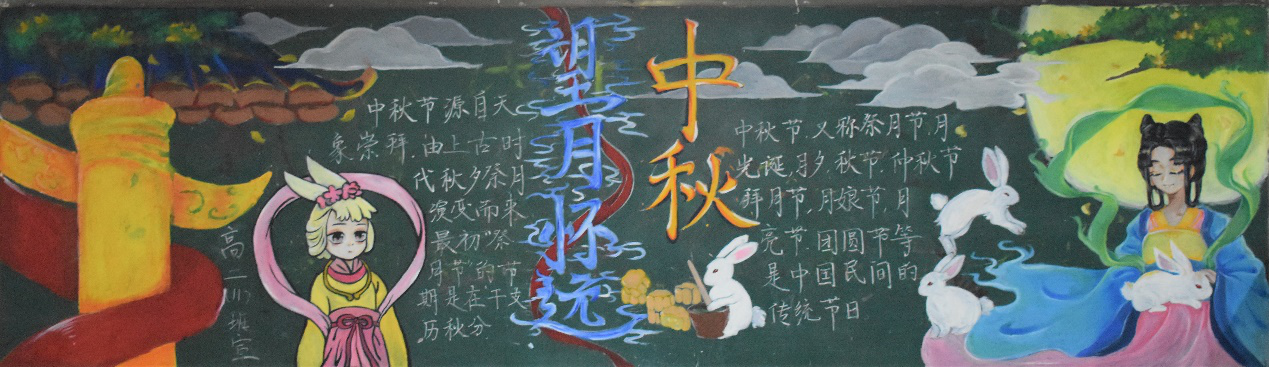 中秋节源自天
象崇拜,由上古时
代秋夕祭月
演变而来
最初"祭
月节"的节
期是在干支
历秋分
高二
望月怀远
中秋
中秋节,又称祭月节,月
光诞,月夕,秋节,仲秋节
拜月节,月娘节,月
亮节,团圆节等
是中国民间的
传统节日